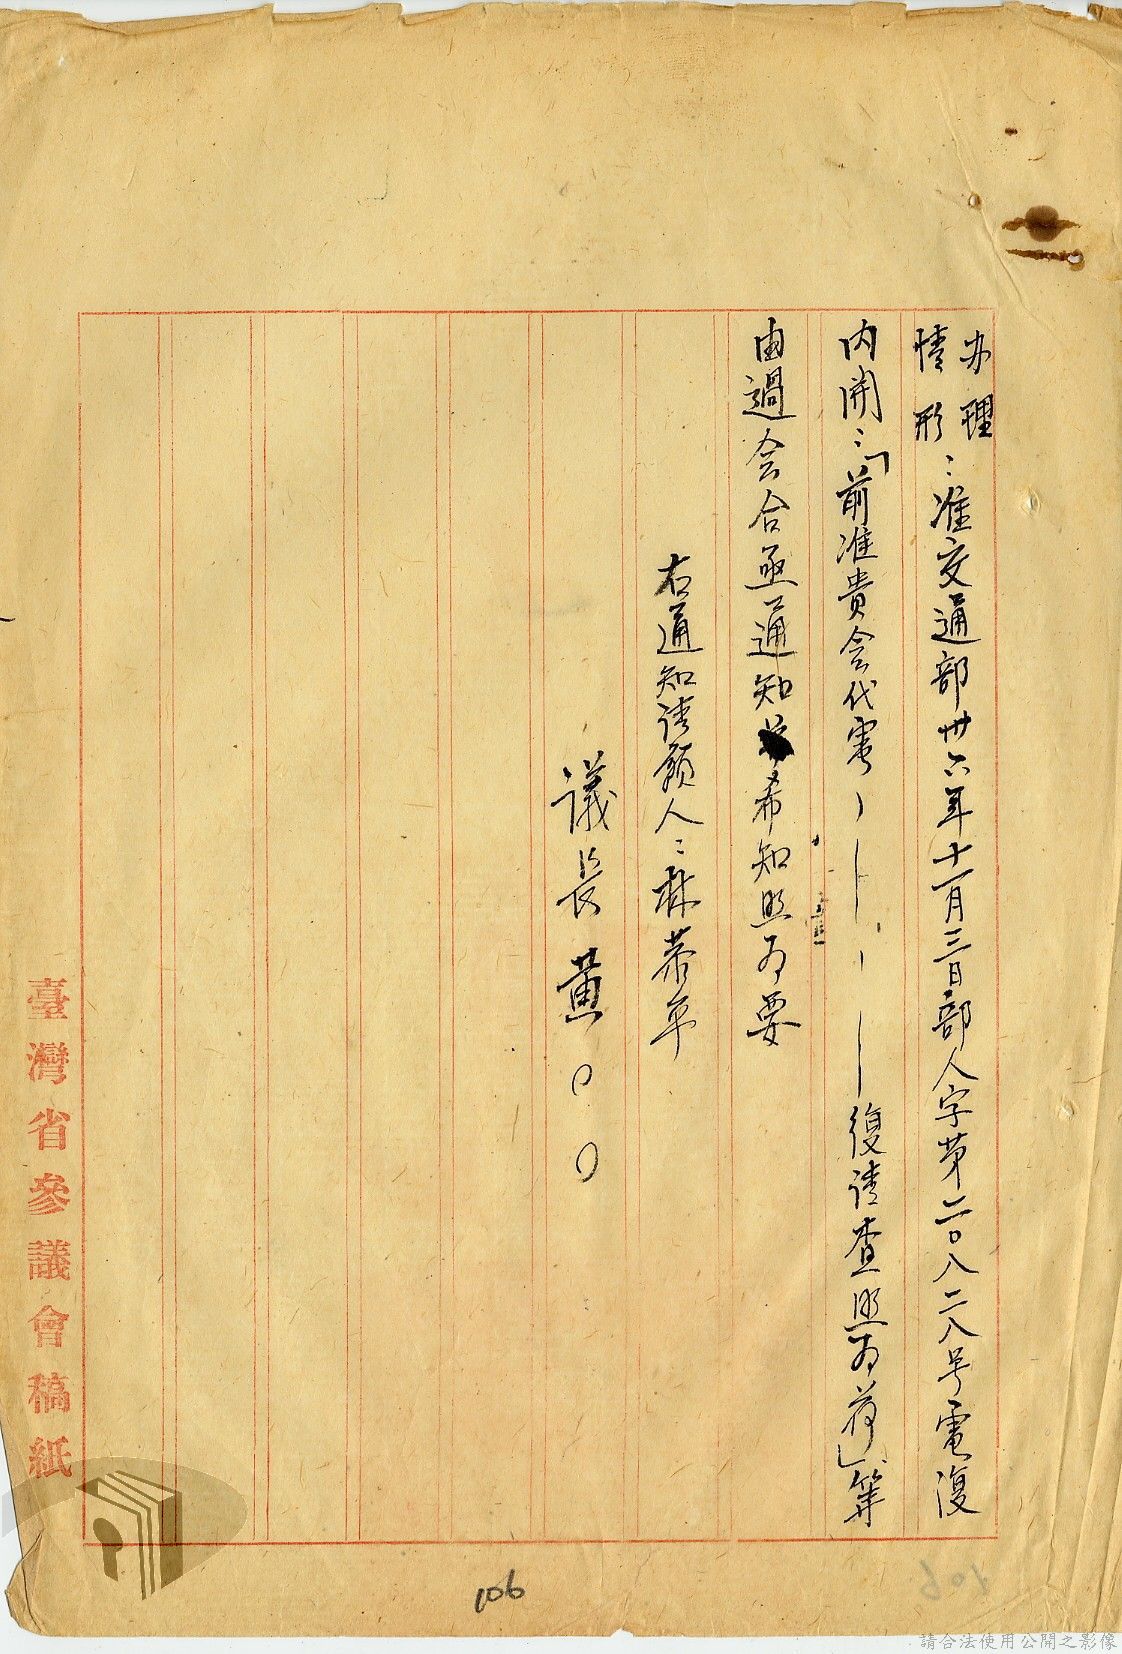 办理
情形：准交通部卅六年十一月三日部人字第二〇八二八号電復
内開：「前准貴会代電、——、——復请查照为荷」等
由過会合亟通知希知照为要
右通知请願人：林恭平
議長黄〇〇
臺灣省參議會稿紙
106
請合法使用公開之影像